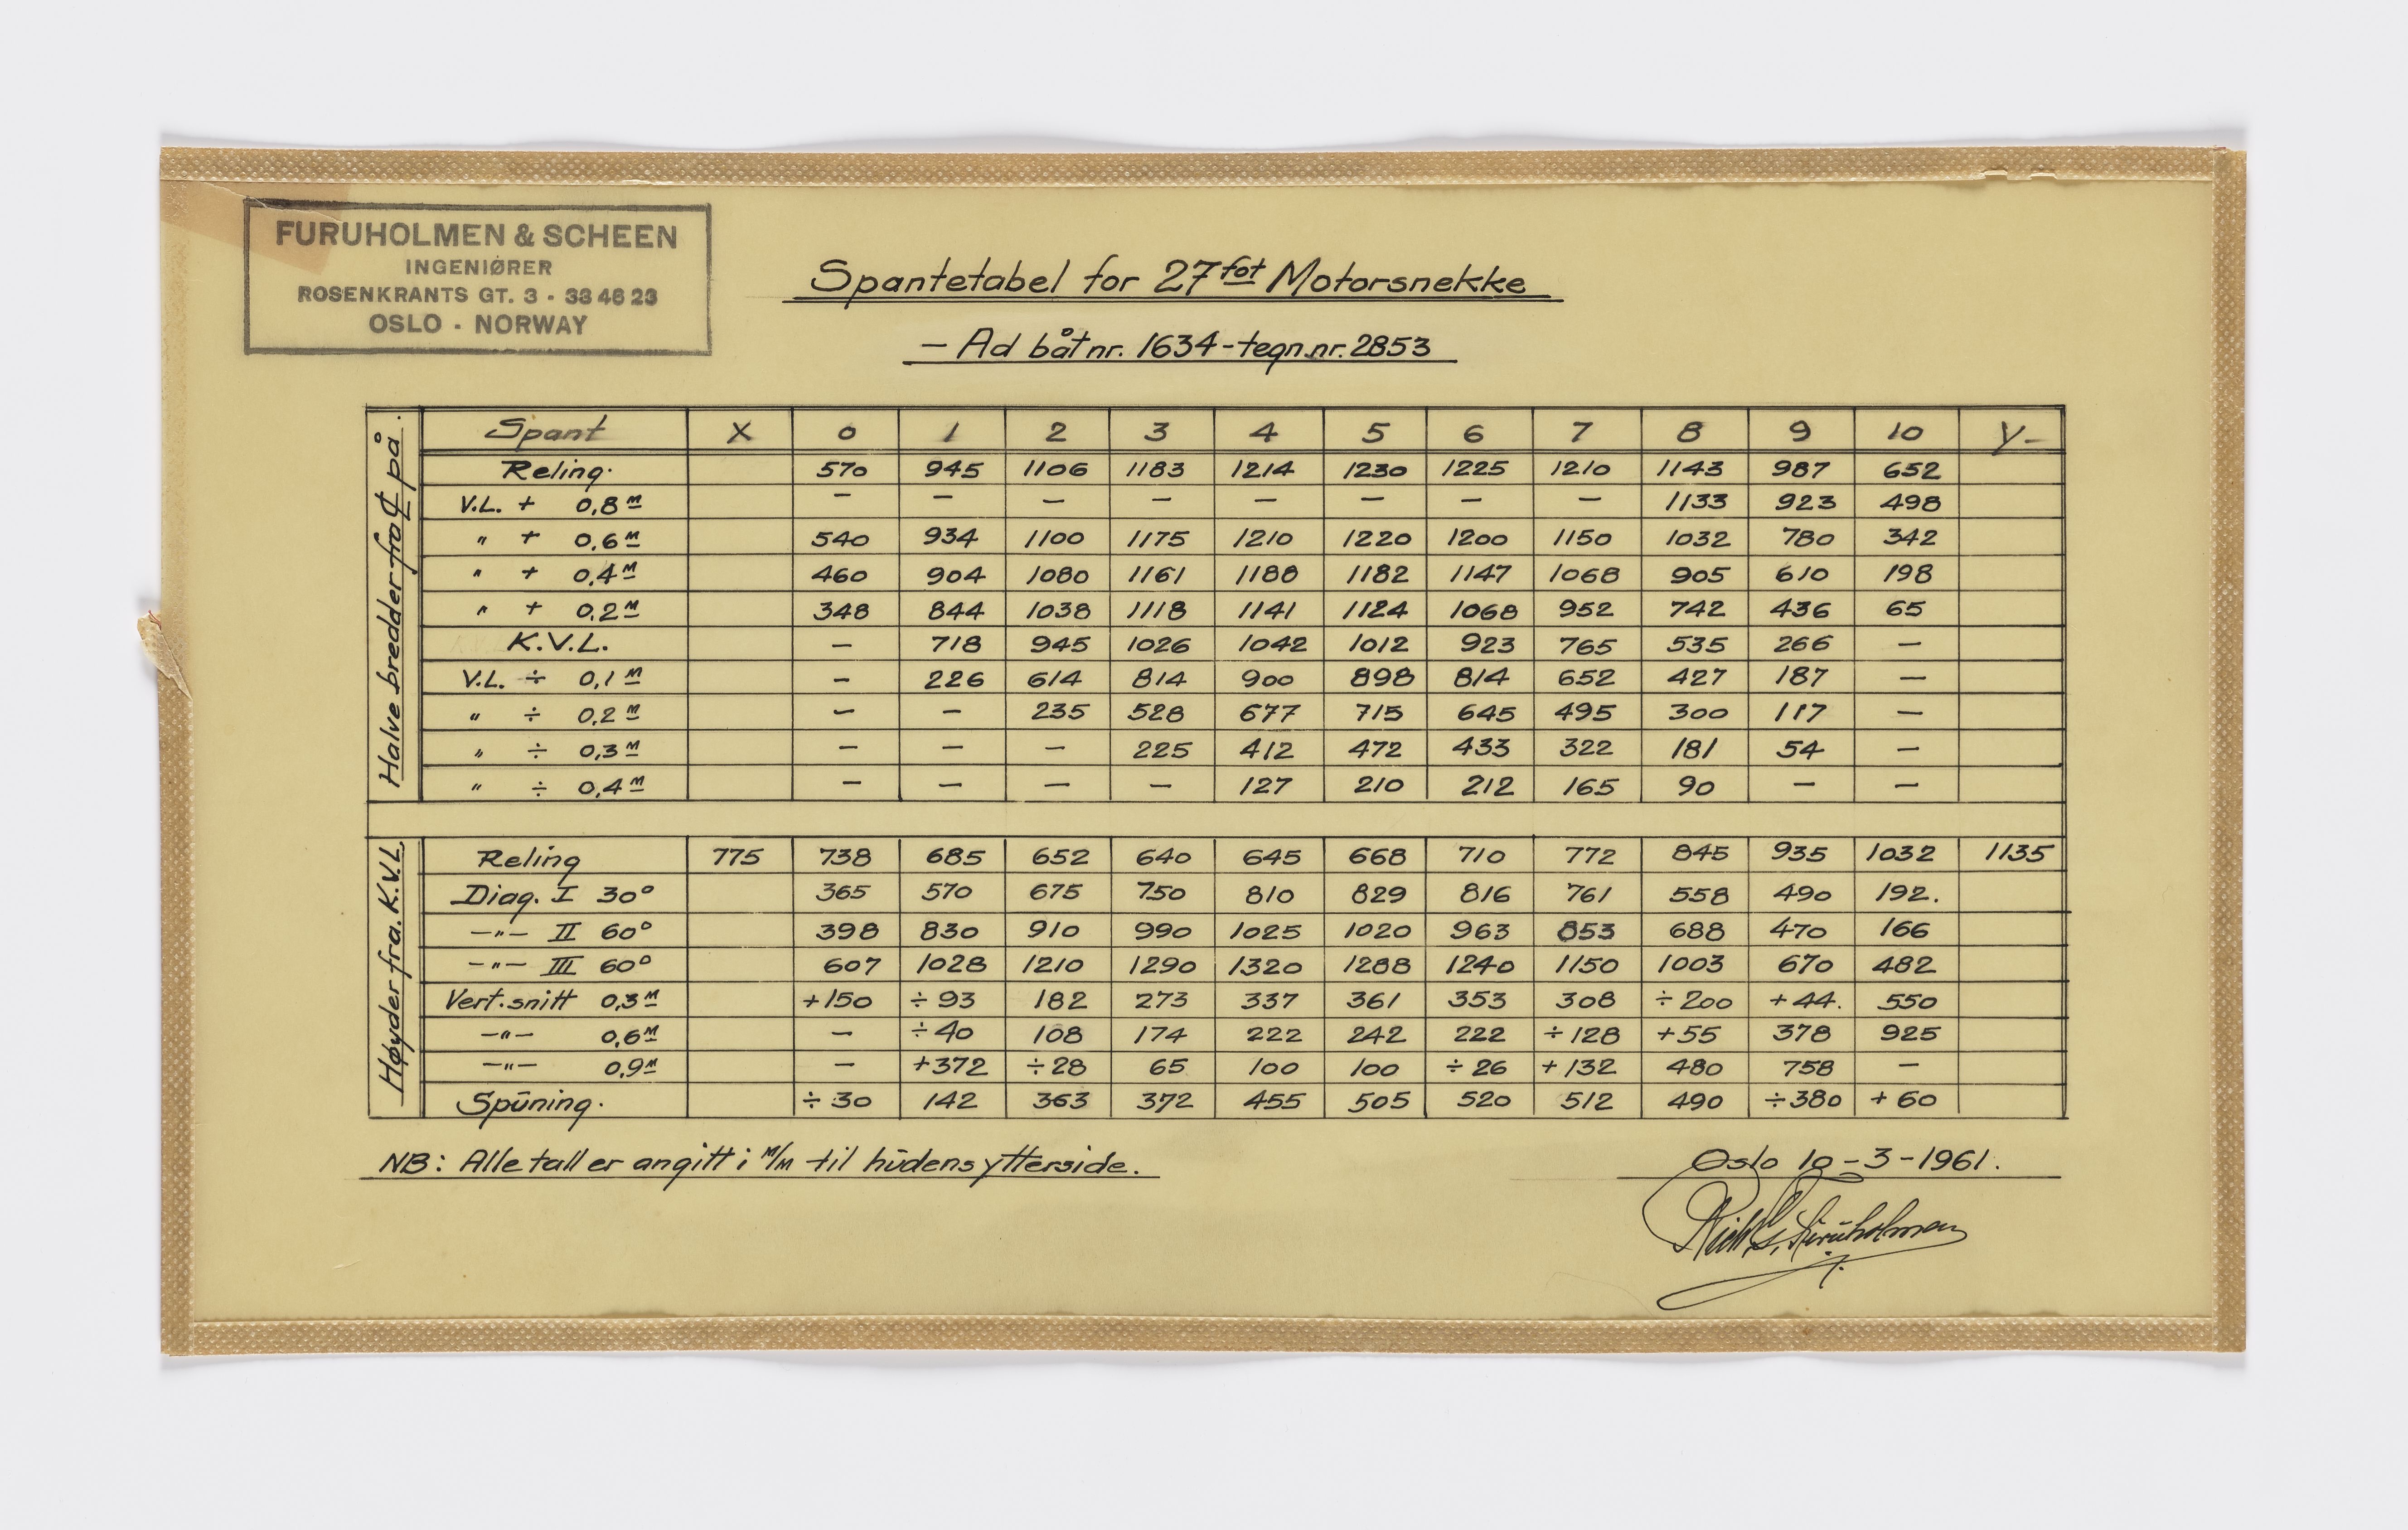 FURUHOLMEN & SCHEEN
INGENIØRER
ROSENKRANTS GT. 3 - 33 46 23
OSLO - NORWAY
Spantetabel for 27 fot Motorsnekke
- Ad båt nr. 1634 - tegn.nr. 2853
Halve bredder fra ℄ på.
Spant X 0 1 2 3 4 5 6 7 8 9 10 Y-
Reling. 570 945 1106 1183 1214 1230 1225 1210 1143 987 652
V.L. + 0,8 m – – – – – – – – 1133 923 498
" + 0,6 m 540 934 1100 1175 1210 1220 1200 1150 1032 780 342
" + 0,4 m 460 904 1080 1161 1188 1182 1147 1068 905 610 198
" + 0,2 m 348 844 1038 1118 1141 1124 1068 952 742 436 65
K.V.L. – 718 945 1026 1042 1012 923 765 535 266 –
V.L. ÷ 0,1 m – 226 614 814 900 898 814 652 427 187 –
" ÷ 0,2 m – – 235 528 677 715 645 495 300 117 –
" ÷ 0,3 m – – – 225 412 472 433 322 181 54 –
" ÷ 0,4 m – – – – 127 210 212 165 90 – –
Høyder fra K.V.L.
Reling 775 738 685 652 640 645 668 710 772 845 935 1032 1135
Diag. I 30° 365 570 675 750 810 829 816 761 558 490 192.
–"– II 60° 398 830 910 990 1025 1020 963 853 688 470 166
–"– III 60° 607 1028 1210 1290 1320 1288 1240 1150 1003 670 482
Vert.snitt 0,3 m +150 ÷93 182 273 337 361 353 308 ÷200 +44. 550
–"– 0,6 m – ÷40 108 174 222 242 222 ÷128 +55 378 925
–"– 0,9 m – +372 ÷28 65 100 100 ÷26 +132 480 758 –
Spūning. ÷30 142 363 372 455 505 520 512 490 ÷380 +60
NB: Alle tall er angitt i m/m til hūdens ytterside.
Oslo 10-3-1961.
Furuholmen